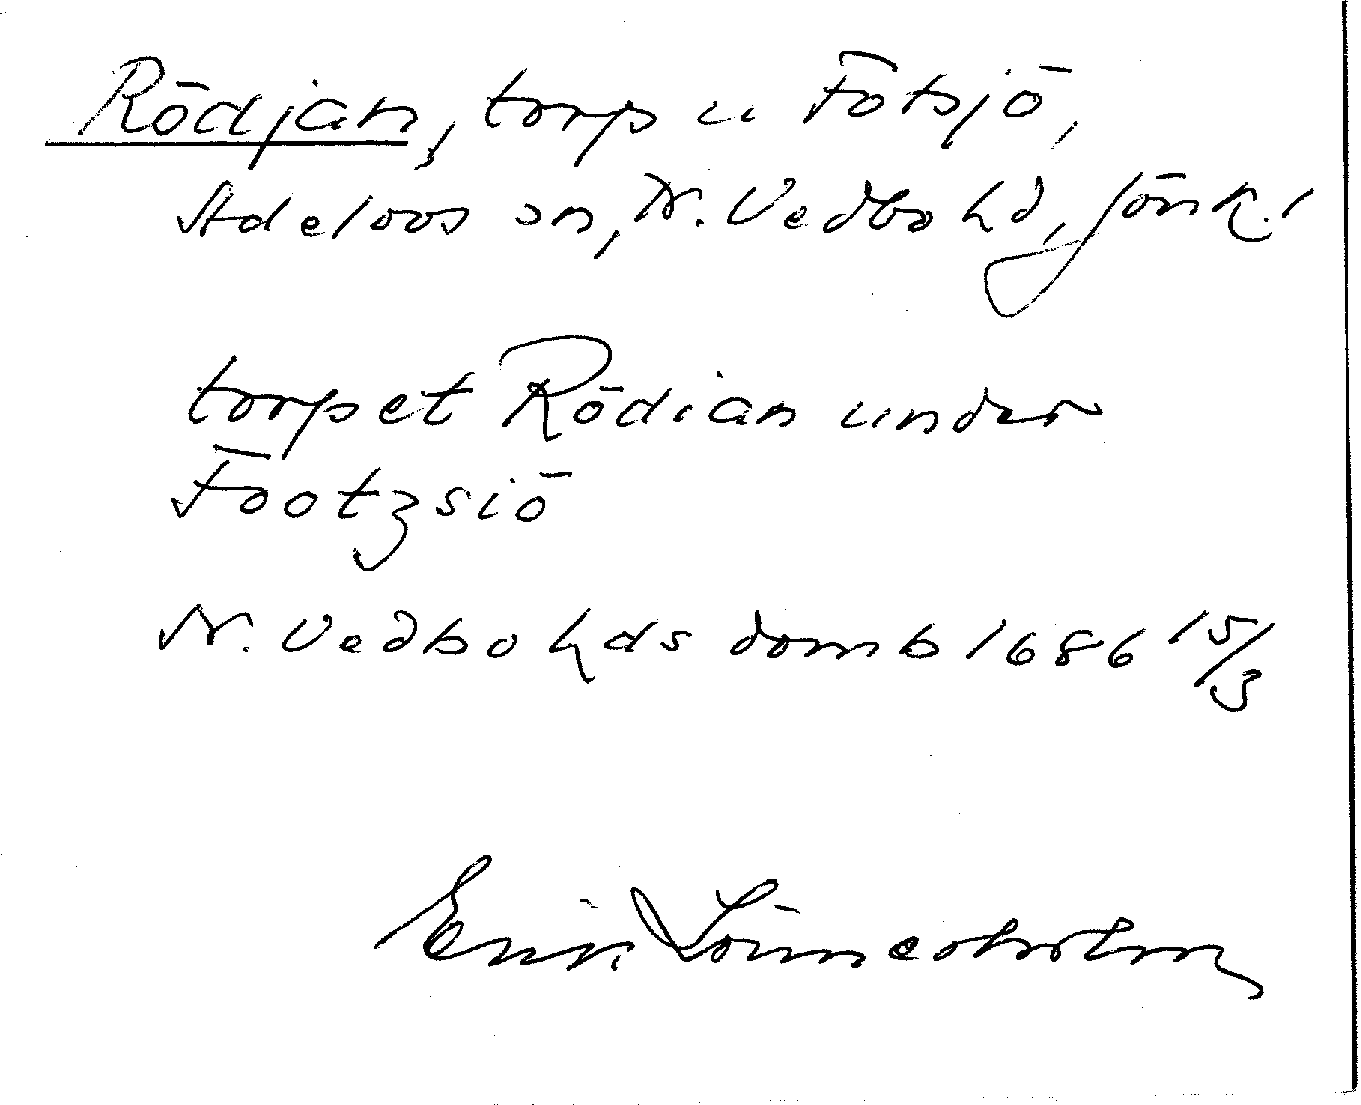 Rödjan, torp u Fotsjö,
Adelövs sn, N. Vedbo hd, Jönk. l
torpet Rödian under
Footzsiö
N. Vedbo hds domb 1686 15/3